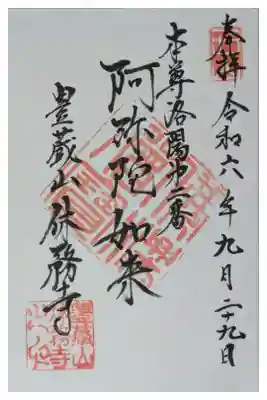 奉拝 令和六年九月二十九日
本尊洛陽第二番
阿弥陀如来
豊蔵山休務寺